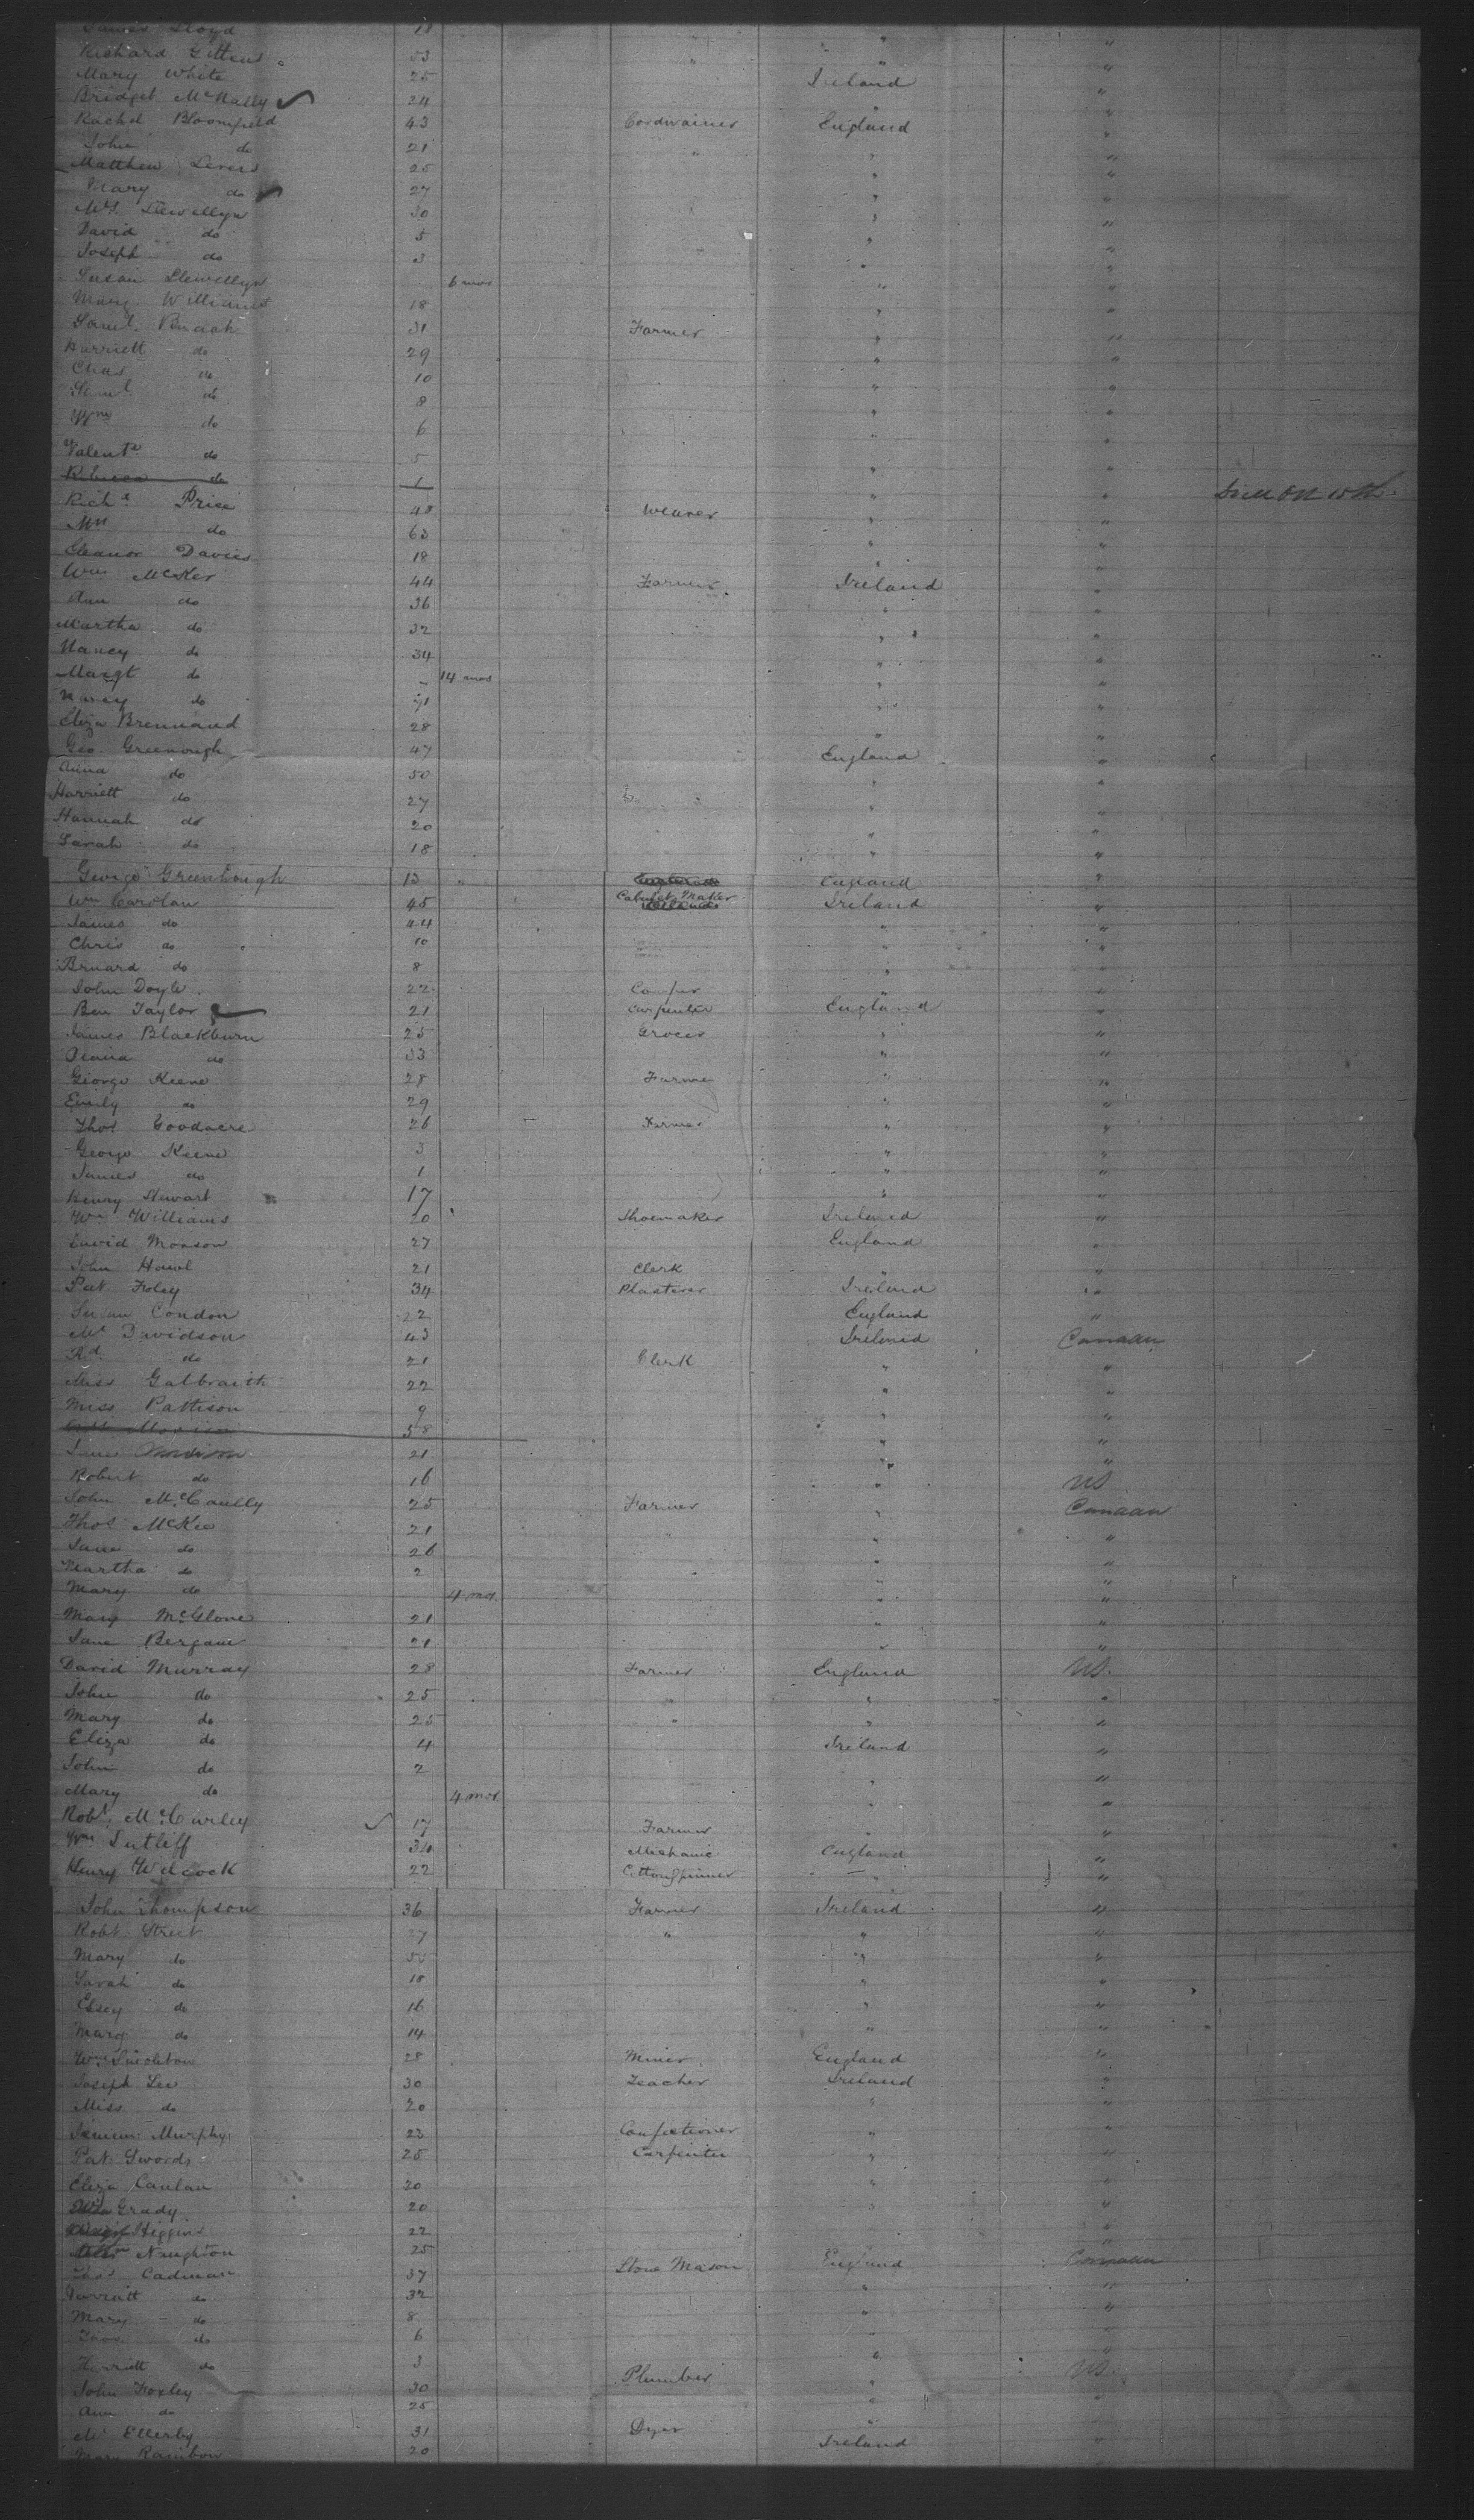 James Lloyd 18 " "
Richard Gittens 53 " " "
Mary White 25 Ireland "
Bridget McNally 24 " "
Rachel Bloomfield 43 Cordwainer England "
John do 21 " " "
Matthew Levers 25 " "
Mary do 27 " "
Mrs Llewellyn 30 " "
David do 5 " "
Joseph do 3 " "
Susan Llewellyn 6 mos " "
Mary Williams 18 " "
Saml. 31 Farmer " "
Harriett do 29 " "
Chas do 10 " "
Saml do 8 " "
Wm do 6 " "
Valent do 5 " "
Rebecca do 1 " "
Richd Price 48 Weaver " "
do 63 " "
Eleanor Davies 18 " "
Wm McKee 44 Farmer Ireland "
Ann do 36 " "
Martha do 32 " "
Nancy do 34 " "
Margt do 14 mos " "
Nancy do " "
Eliza Brennand 28 " "
Geo. Greenough 47 England "
Anna do 50 " "
Harriett do 27 " "
Hannah do 20 " "
Sarah do 18 " "
George Greenhough 13 England "
Wm Carolan 45 Cabinet Maker Ireland "
James do 44 " "
Chris do 10 " "
Bruard do 8 " "
John Doyle 22 Cooper " "
Ben Taylor 21 Carpenter England "
James Blackburn 25 Grocer " "
do 33 " "
George Keene 28 Farmer " "
Emily do 29 " "
Thos. Goodacre 26 Farmer " "
George Keene 3 " "
James do 1 " "
Henry Stewart 17 " "
Wm Williams 20 Shoemaker Ireland "
David Monson 27 England "
John 21 Clerk " "
Pat Foley 34 Plasterer Ireland "
Susan Condon 22 England "
Mr Davidson 43 Ireland Canaan
Rd. do 21 Clerk " "
Miss Galbraith 22 " "
Miss Pattison 9 " "
58 " "
Jane 21 " "
Robert do 16 " US
John McCaully 25 Farmer " Canaan
Thos McKee 21 " " "
Jane do 26 " "
Martha do 2 " "
Mary do 4 mos. " "
Mary McGlone 21 " "
Jane 21 " "
David Murray 28 Farmer England US.
John do 25 " " "
Mary do 25 " " "
Eliza do 4 Ireland "
John do 2 " "
Mary do 4 mos. " "
Robt. McCurley 17 Farmer " "
Wm Sutliff 34 Mechanic England "
Henry Wilcock 22 Cotton Spinner " "
John Thompson 36 Farmer Ireland "
Robt. Street " " "
Mary do " "
Sarah do 18 " "
Elsey do 16 " "
Marg do 14 " "
Wm 28 Miner England "
Joseph Lee 30 Teacher Ireland "
Miss do 20 " "
Murphy 23 Confectioner " "
Pat Swords 25 Carpenter " "
Eliza Caulan 20 " "
Grady 20 " "
Higgins 22 "
Naughton 25 "
Thos Cadman 37 Stone Mason England Canaan
Harriett do 32 " "
Mary do 8 " "
Thos do 6 " "
Harriett do 3 " "
John Foxley 30 Plumber " US.
Ann do 25 " "
Mr Ellerby 31 Dyer " "
Mary Rainbow 20 Ireland "